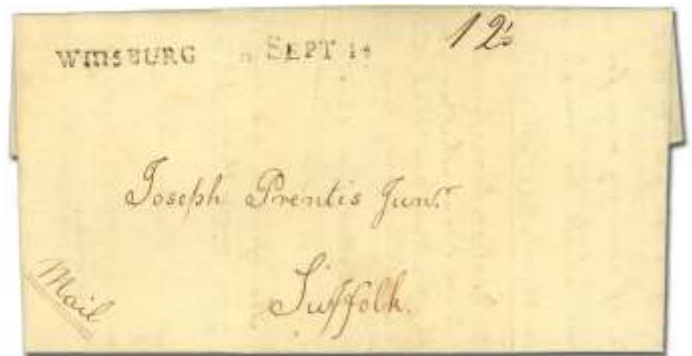 WmsBURG SEPT 14 12½
Joseph Prentis Junr.
Mail
Suffolk.